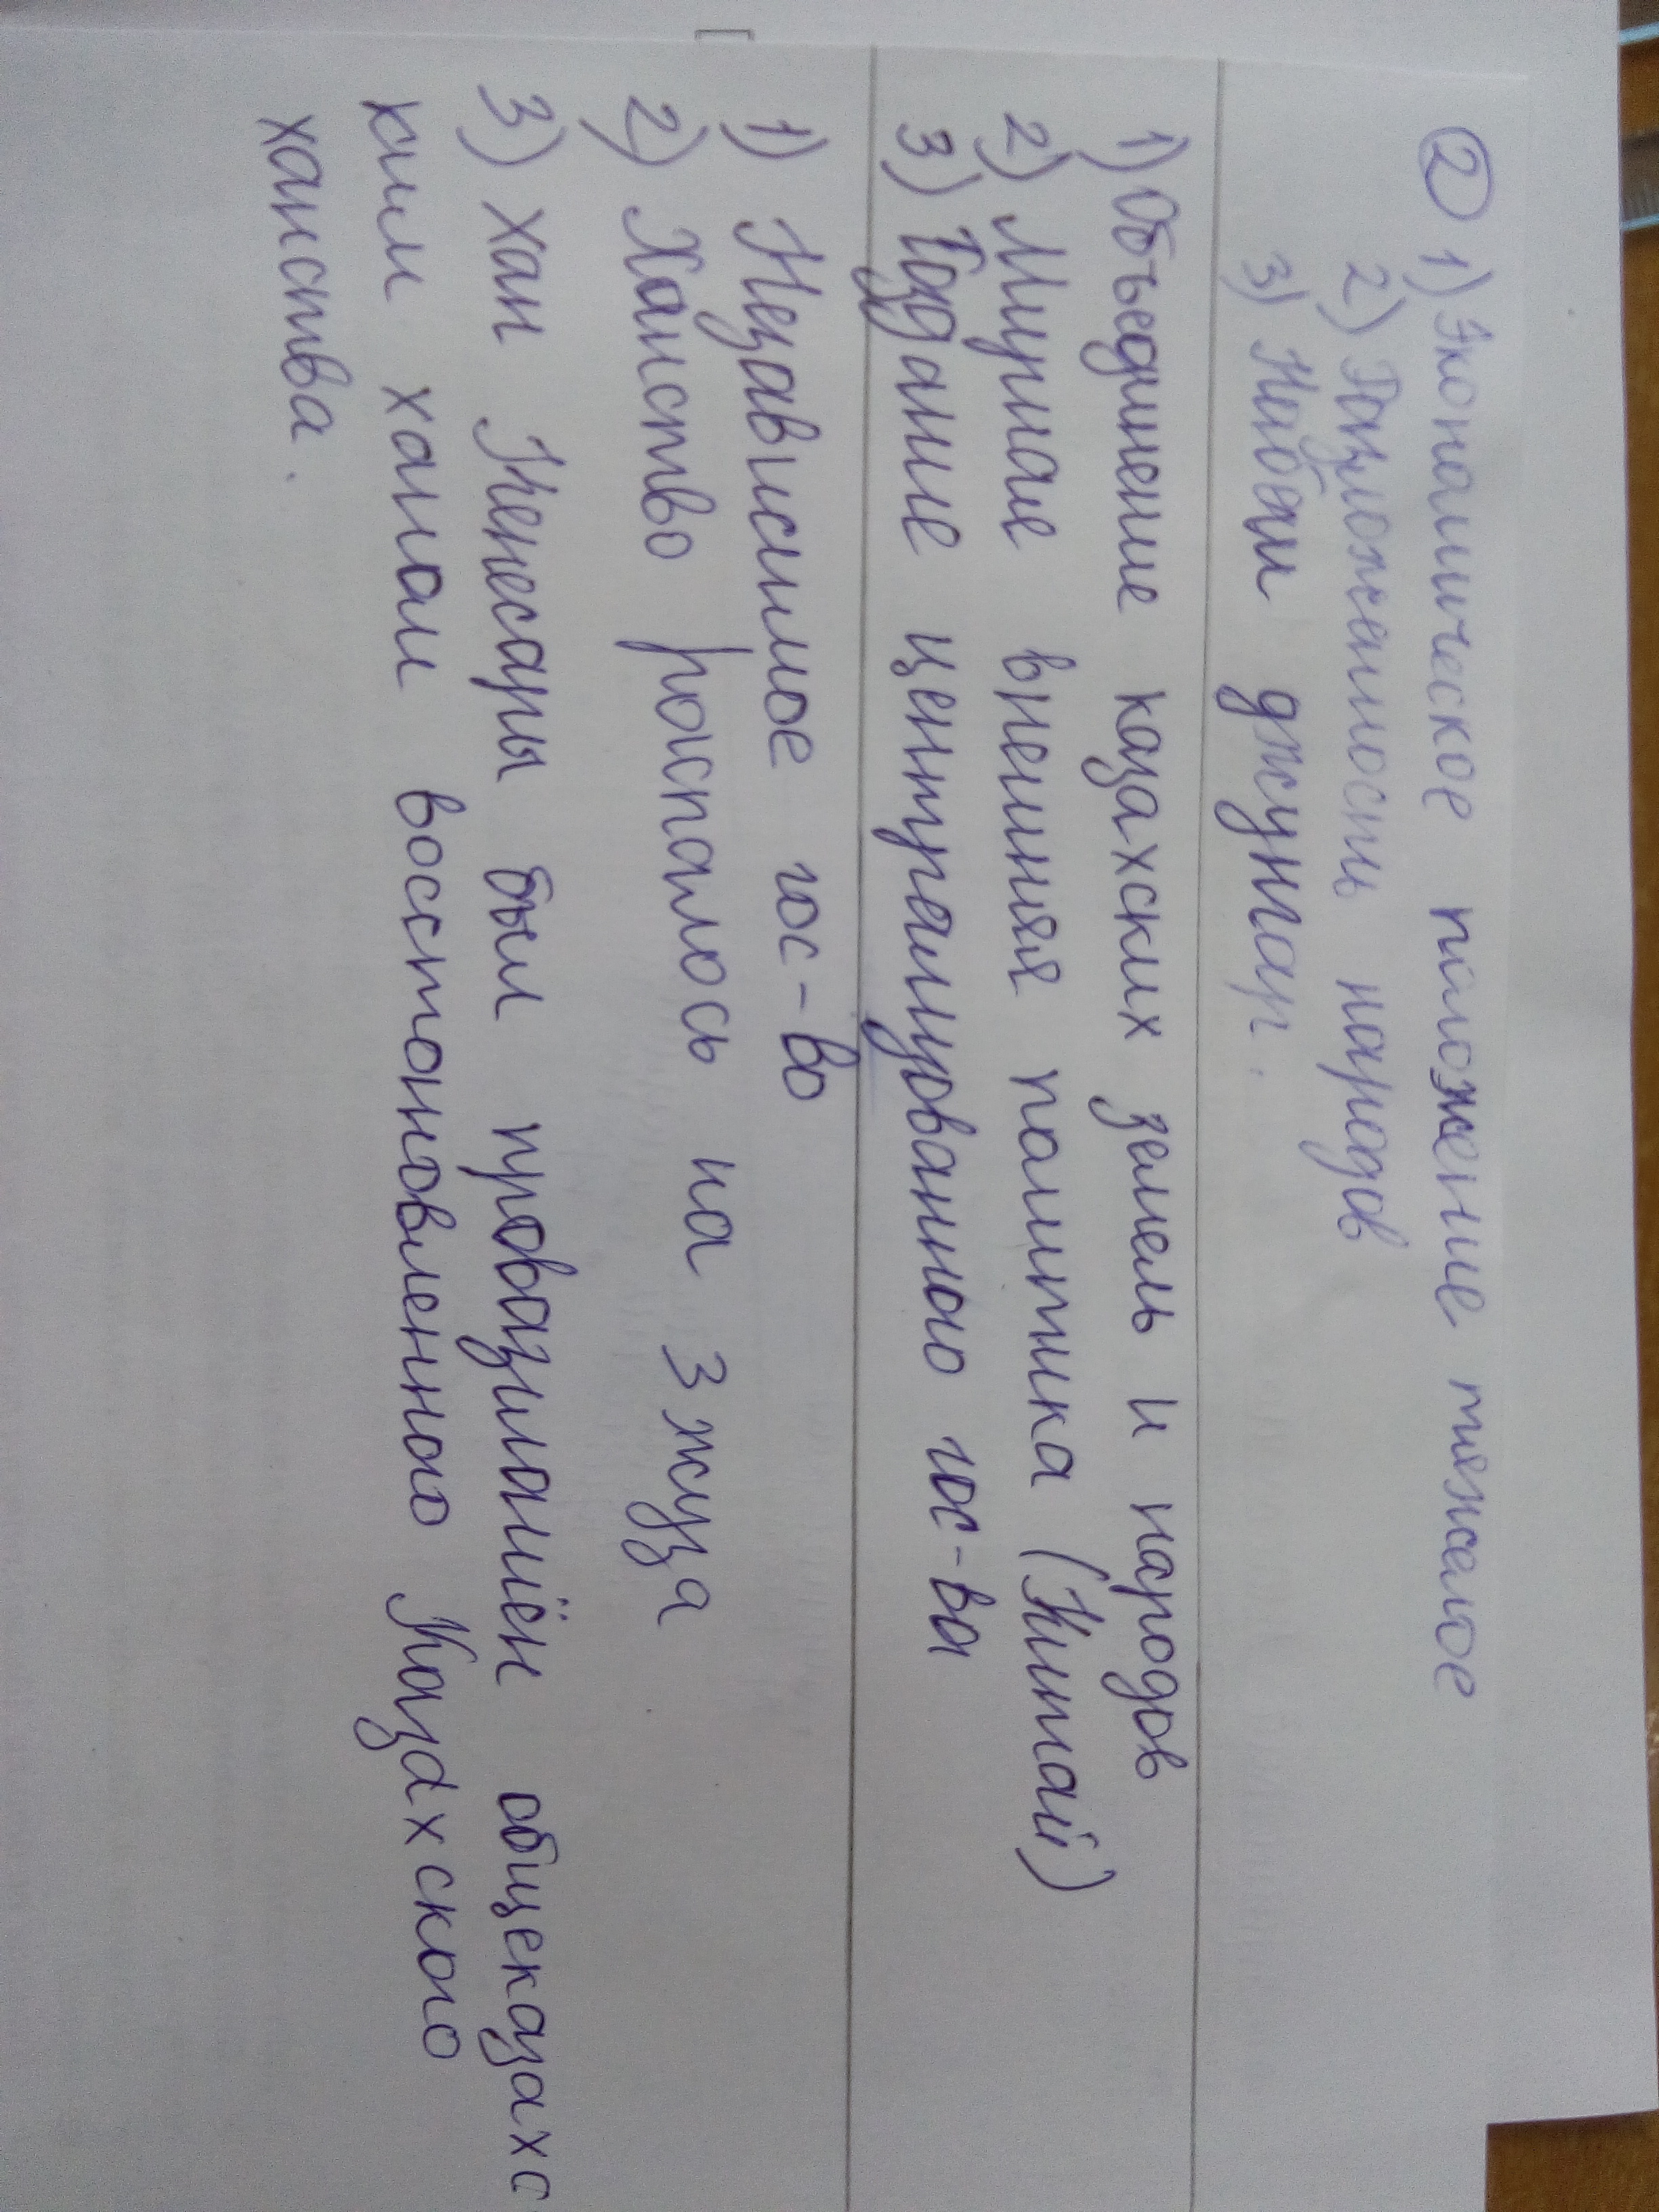 ② 1) Экономическое положение тяжелое
2) Разложенность народов
3) Набеги джунгар.
1) Объединение казахских земель и народов
2) Мирная внешняя политика (Китай)
3) Создание централизованного гос-ва
1) Независимое гос-во
2) Ханство распалось на 3 жуза
3) хан Кенесары был провозглашён общеказахс
ким ханом восстоновленного Казахского
ханства.